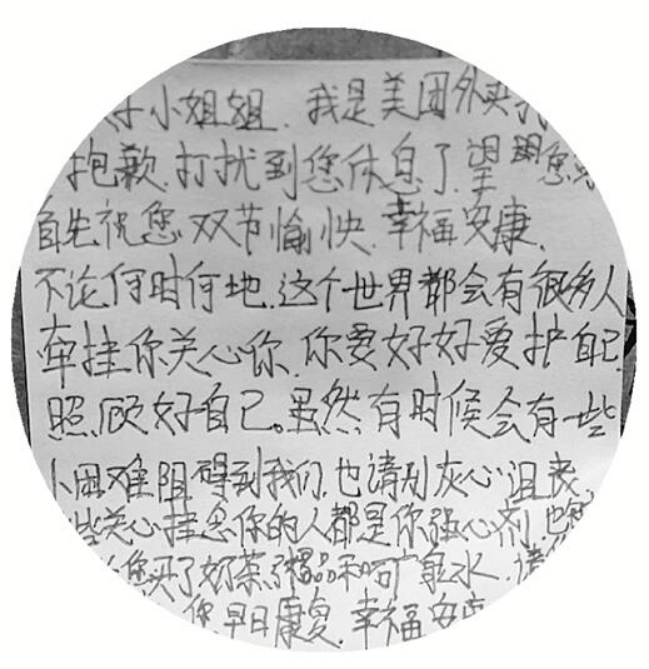 小姐姐.我是美团外卖
抱歉.打扰到您休息了.望
首先祝您双节愉快.幸福安康.
不论何时何地.这个世界都会有很多人
牵挂你关心你.你要好好爱护自己.
照顾好自己。虽然有时候会有一些
小困难阻碍到我们.也请别灰心沮丧.
些关心挂念你的人都是你强心剂.也
您买了奶茶 和矿泉水.
您早日康复.幸福安康